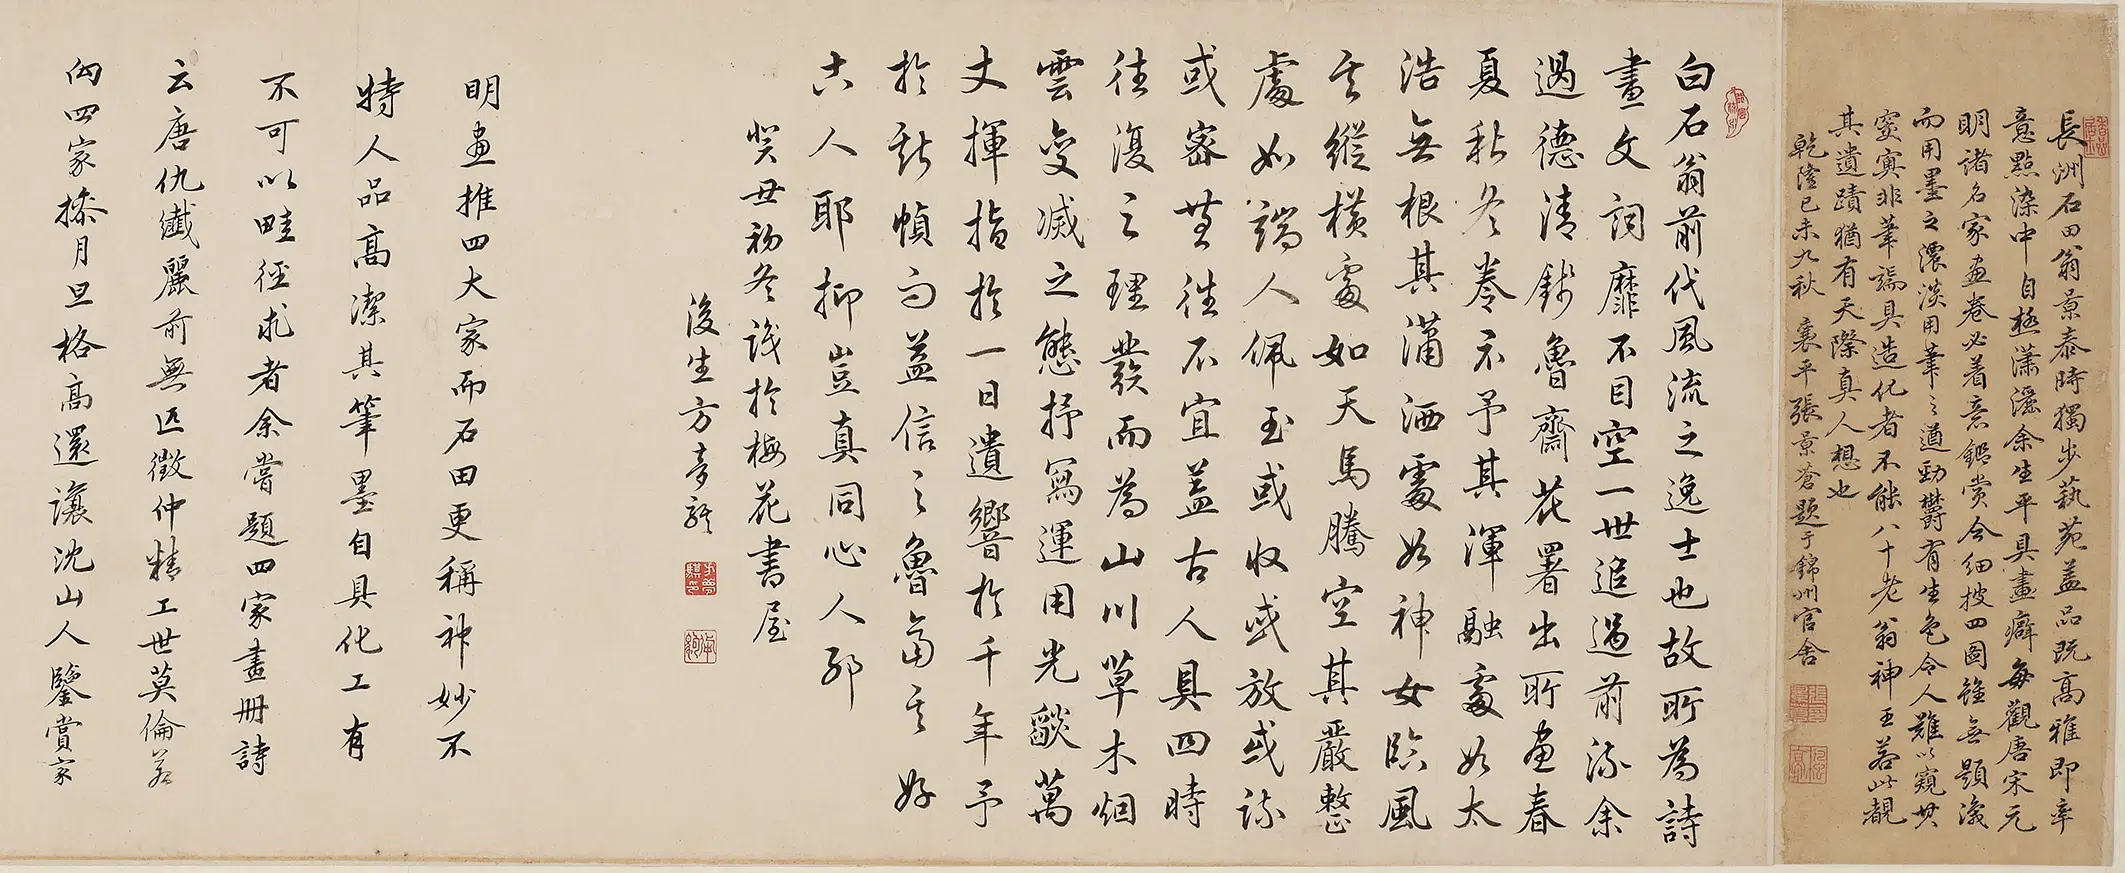 長洲石田翁景泰時獨步藝苑蓋品既高雅即率
意點染中自極瀟灑余生平具畫癖每觀唐宋元
明諸名家畫卷必着意鑑賞今細披四圖雖無題識
而用墨之濃淡用筆之遒勁欝有生色令人難以窺其
窔寞非筆端具造化者不能八十老翁神王若此覩
其遺蹟猶有天際真人想也
乾隆己未九秋 襄平張景蒼題于錦州官舍
白石翁前代風流之逸士也故所為詩
畫文詞靡不目空一世追過前流余
過德清錢魯齋花署出所畫春
夏秋冬卷示予其渾融處如太
浩無根其瀟洒處如神女臨風
其縱橫處如天馬騰空其嚴整
處如端人佩玉或收或放或疏
或密無往不宜蓋古人具四時
往復之理發而為山川草木烟
雲變滅之態抒寫運用光燄萬
丈揮指於一日遺響於千年予
於斯幀而益信之魯齋其好
古人耶抑豈真同心人耶
癸丑初冬識於梅花書屋
後生方
明畫推四大家而石田更稱神妙不
特人品高潔其筆墨自具化工有
不可以畦徑求者余嘗題四家畫冊詩
云唐仇纖麗前無匹徵仲精工世莫倫若
向四家操月旦格高還讓沈山人鑒賞家